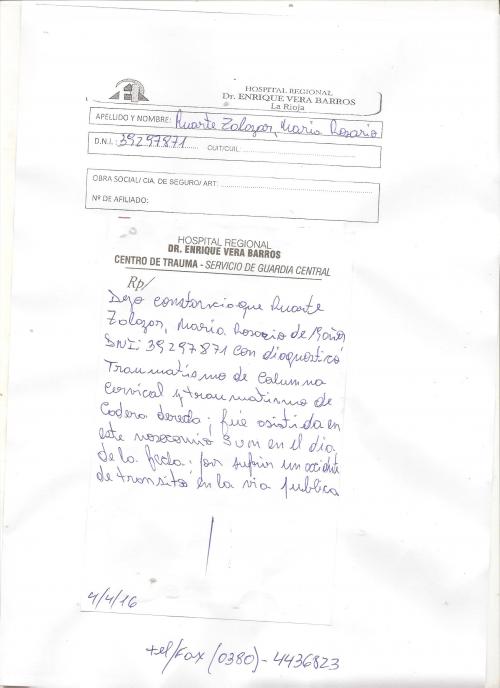 HOSPITAL REGIONAL
Dr. ENRIQUE VERA BARROS
La Rioja
APELLIDO Y NOMBRE: Duarte Zalazar, Maria Rosario
D.N.I.: 39297871 CUIT/CUIL:
OBRA SOCIAL/ CIA. DE SEGURO/ ART:
Nº DE AFILIADO:
HOSPITAL REGIONAL
DR. ENRIQUE VERA BARROS
CENTRO DE TRAUMA - SERVICIO DE GUARDIA CENTRAL
Rp/
Dejo constancia que Duarte
Zalazar, Maria Rosario de años
DNI: 39297871 con diagnostico
Traumatismo de Columna
Cervical y traumatismo de
Cadera derecha; fue asistida en
este nosocomio en el dia
de la fecha; por sufrir un accidente
de transito en la via publica
4/4/16
tel/Fax (0380) - 4436823